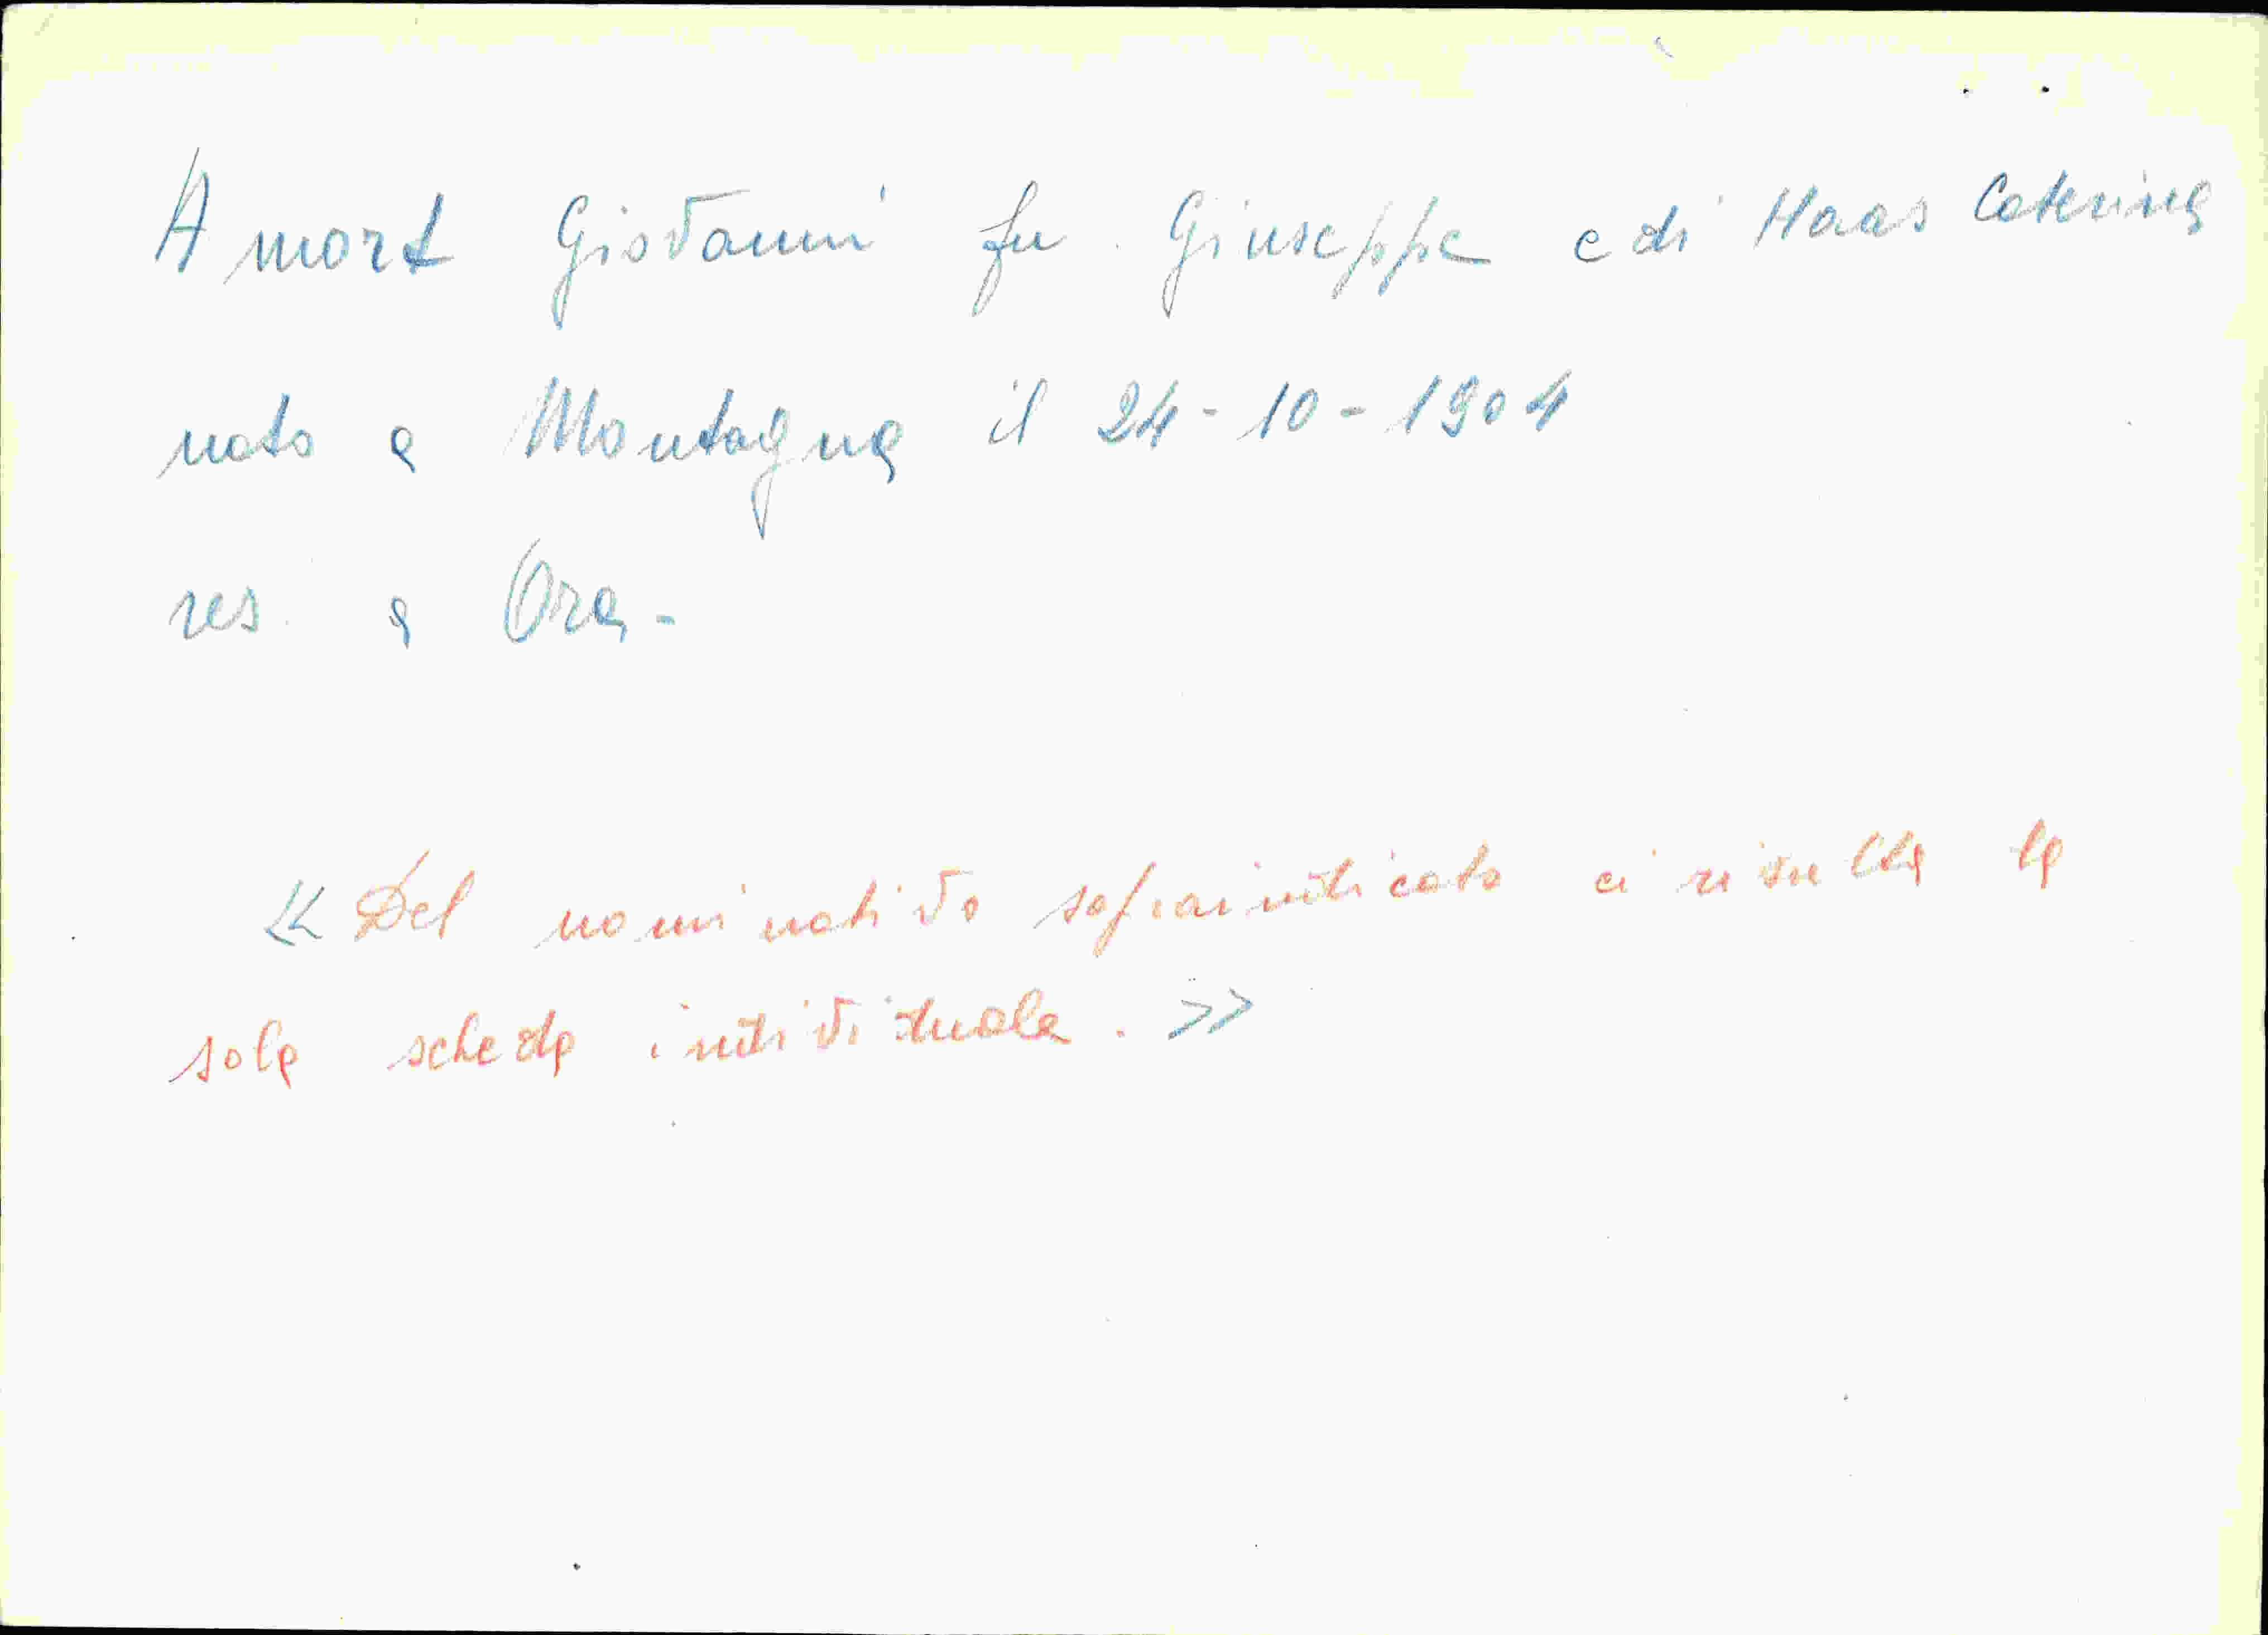 Amort Giovanni fu Giuseppe e di Haas Caterina
nato a Montagna il 24-10-1904
res. a Ora-
<< Del nominativo sopraindicato ci risulta la
sola scheda individuale. >>